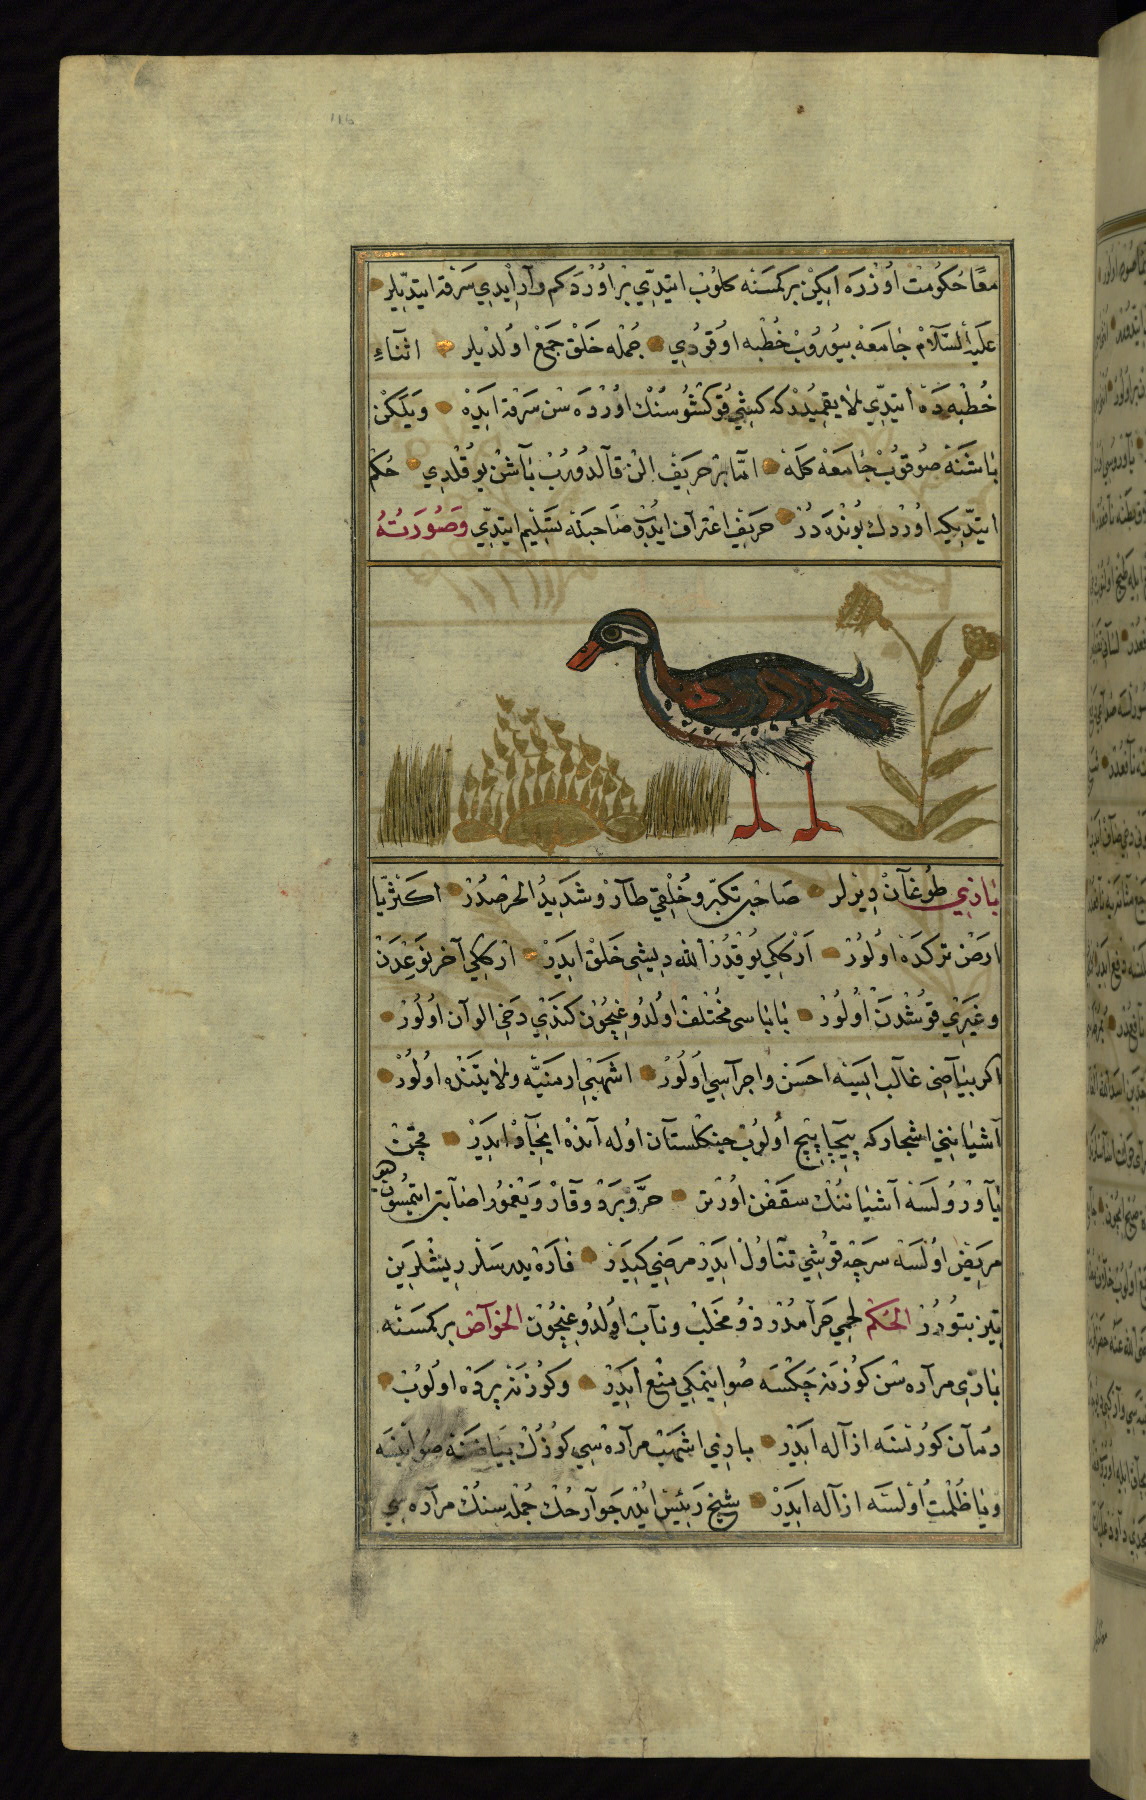 معًا حكومت اوزره ایكن بر كمسنه كلوب ایتدی بر اوردكم وار ایدی سرقة ایتدیلر
علیه السّلام جامعه بیوروب خطبه اوقودی جمله خلق جمع اولدیلر اثناء
خطبه ده ایتدی كشی قوكشوسنك اوزده سن سرقة ایده ویلكن
باشنه صوقوب جامعه كله امّا بر حریف الن قالدوروب باشن یوقلدی حكم
ایتدیكه اوردك بونده در حریف اعتراف ایدوب صاحبنه تسلیم ایتدی وصورته
بازی طوغان دیرلر صاحب تكبّر و خلقی طار و شدید الحرصدر اكثریا
ارض تركده اولور ارككی یوقدر الله دیشی خلق ایدر ارككی آخر نوعدن
و غیری قوشدن اولور باباسی مختلف اولدوغیچون كندی دخی الوان اولور
اكر بیاضی غالب ایسه احسن واجراسی اولور اشهبی ارمنیّه و اولور
آشیاننی اشجاركه پیچاپیچ اولوب جنكلستان اوله آنده ایجاد ایدر قچن
یاورولسه آشیاننك سقفن اورتر حرّ و برد و قار و یغمور اصابت ایتمسون دیو
مریض اولسه سرچه قوشی تناول ایدر مرضی كیدر فاره یدرسلر ریشلرین
تیز بتورر الحكم لحمی حرامدر ذو مخلب وناب اولدوغیچون الخواص بر كمسنه
بازی مراره سن كوزنه چكسه صو اینمكی منع ایدر و كوزنه پرده اولوب
دمان كورنسه ازاله ایدر بازی اشهب مراره سی كوزك بیاضنه صو اینسه
ویا ظلمت اولسه ازاله ایدر شیخ رئیس ایدر جوارحك جمله سنك مراره سی